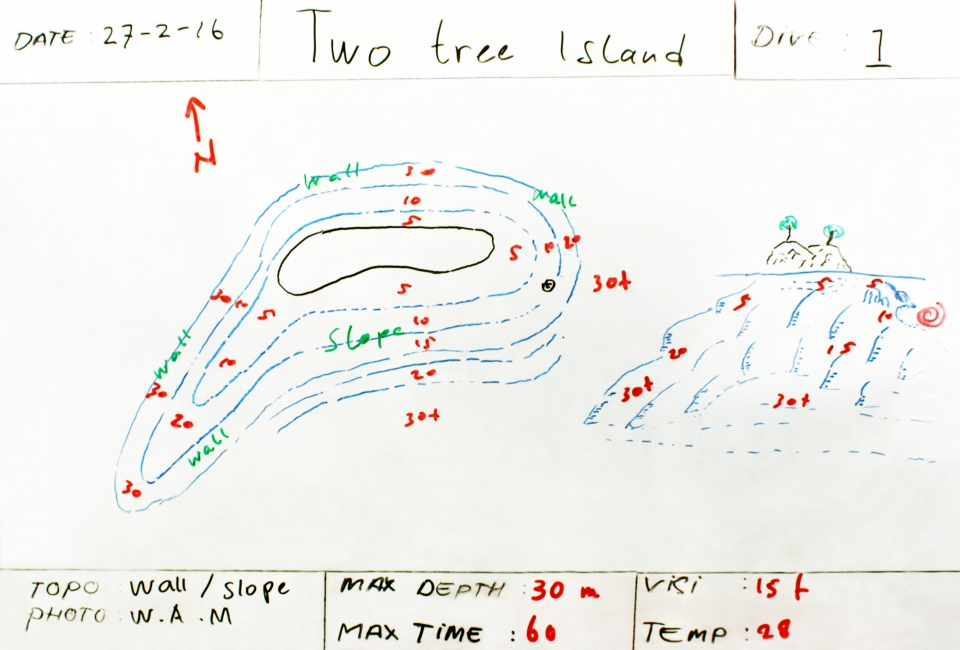 DATE : 27-2-16
Two tree Island
DIVE : 1
N
wall
30
wall
10
5
5
10
20
30+
5
30
10
5
10
Slope
15
wall
10
20
30
20
30+
wall
30
5
5
5
10
20
15
30+
30+
TOPO : wall / slope
PHOTO : W.A.M
MAX DEPTH : 30 m
MAX TIME : 60
VISI : 15 +
TEMP : 28